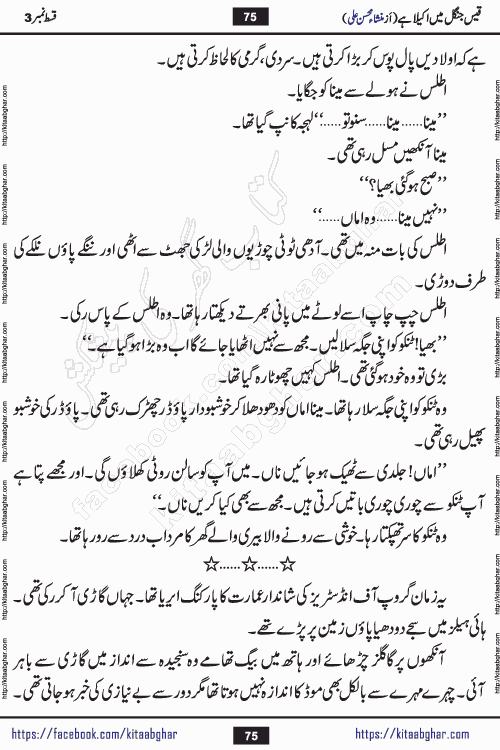 قیس جنگل میں اکیلا ہے (از منشاء محسن علی)
75
قسط نمبر 3
ہے کہ اولادیں پال پوس کر بڑا کرتی ہیں۔ سردی، گرمی کا لحاظ کرتی ہیں۔
اطلس نے ہولے سے مینا کو جگایا۔
’’مینا...... مینا...... سنو تو......‘‘ لہجہ کانپ گیا تھا۔
مینا آنکھیں مسل رہی تھی۔
’’صبح ہو گئی بھیا؟‘‘
’’نہیں مینا...... وہ اماں......‘‘
اطلس کی بات منہ میں تھی۔ آدھی ٹوٹی چوڑیوں والی لڑکی جھٹ سے اٹھی اور ننگے پاؤں نلکے کی
طرف دوڑی۔
اطلس چپ چاپ اسے لوٹے میں پانی بھرتے دیکھتا رہا تھا۔ وہ اطلس کے پاس رکی۔
’’بھیا! ٹنکو کو اپنی جگہ سلا لیں۔ مجھ سے نہیں اٹھایا جائے گا اب وہ بڑا ہو گیا ہے۔‘‘
بڑی تو وہ خود ہو گئی تھی۔ اطلس کہیں چھوٹا رہ گیا تھا۔
وہ ٹنکو کو اپنی جگہ سلا رہا تھا۔ مینا اماں کو دھو دھلا کر خوشبودار پاؤڈر چھڑک رہی تھی۔ پاؤڈر کی خوشبو
پھیل رہی تھی۔
’’اماں! جلدی سے ٹھیک ہو جائیں ناں۔ میں آپ کو سالن روٹی کھلاؤں گی۔ اور مجھے پتا ہے
آپ ٹنکو سے چوری چوری باتیں کرتی ہیں۔ مجھ سے بھی کیا کریں ناں۔‘‘
وہ ٹنکو کا سر تھپکتا رہا۔ خوشی سے رونے والا بیری والے گھر کا مرد اب درد سے رو رہا تھا۔
☆......☆......☆
یہ زمان گروپ آف انڈسٹریز کی شاندار عمارت کا پارکنگ ایریا تھا۔ جہاں گاڑی آ کر رکی تھی۔
ہائی ہیلز میں سجے دودھیا پاؤں زمین پر پڑے تھے۔
آنکھوں پر گاگلز چڑھائے اور ہاتھ میں بیگ تھامے وہ سنجیدہ سے انداز میں گاڑی سے باہر
آئی۔ چہرے مہرے سے بالکل بھی موڈ کا اندازہ نہیں ہوتا تھا مگر دور سے بے نیازی کی خبر ہو جاتی تھی۔
https://facebook.com/kitaabghar
75
https://kitaabghar.com
http://kitaabghar.com
کتاب گھر کی پیشکش
facebook.com/kitaabghar
kitaabghar.com